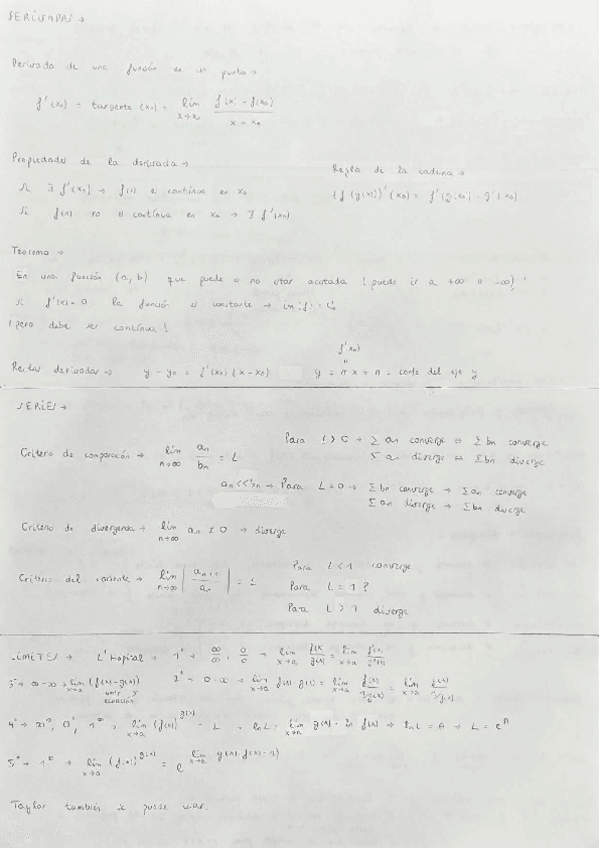 DERIVADAS →
Derivada de una función en un punto →
f'(x₀) = tangente (x₀) = lim x→x₀ (f(x) - f(x₀)) / (x - x₀)
Propiedades de la derivada →
Regla de la cadena →
Si ∃ f'(x₀) → f(x) es continua en x₀
(f(g(x)))'(x₀) = f'(g(x₀)) · g'(x₀)
Si f(x) no es continua en x₀ → ∄ f'(x₀)
Teorema →
En una función (a, b) que puede o no estar acotada (puede ir a +∞ o -∞)
si f'(x) = 0 la función es constante →
¡pero debe ser continua!
f'(x₀)
Rectas derivadas → y - y₀ = f'(x₀) (x - x₀) y = m x + n - corte del eje y
SERIES →
Criterio de comparación → lim n→∞ aₙ/bₙ = L
Para L > 0 → Σ aₙ converge ⇔ Σ bₙ converge
Σ aₙ diverge ⇔ Σ bₙ diverge
aₙ << bₙ → Para L = 0 → Σ bₙ converge → Σ aₙ converge
Σ aₙ diverge → Σ bₙ diverge
Criterio de divergencia → lim n→∞ aₙ ≠ 0 → diverge
Criterio del cociente → lim n→∞ |aₙ₊₁/aₙ| = L
Para L < 1 converge
Para L = 1 ?
Para L > 1 diverge
LÍMITES → L'Hopital → 1º → ∞/∞, 0/0 → lim x→a f(x)/g(x) = lim x→a f'(x)/g'(x)
3º → ∞-∞ → lim x→a (f(x) - g(x)) 2º → 0·∞ → lim x→a f(x)·g(x) = lim x→a f(x)/(1/g(x)) = lim x→a g(x)/(1/f(x))
4º → ∞⁰, 0⁰, 1^∞ → lim x→a (f(x))^g(x) = L → ln L = lim x→a g(x) · ln f(x) → ln L = A → L = e^A
5º → 1^∞ → lim x→a (f(x))^g(x) = e^(lim x→a g(x)(f(x)-1))
Taylor también se puede usar.